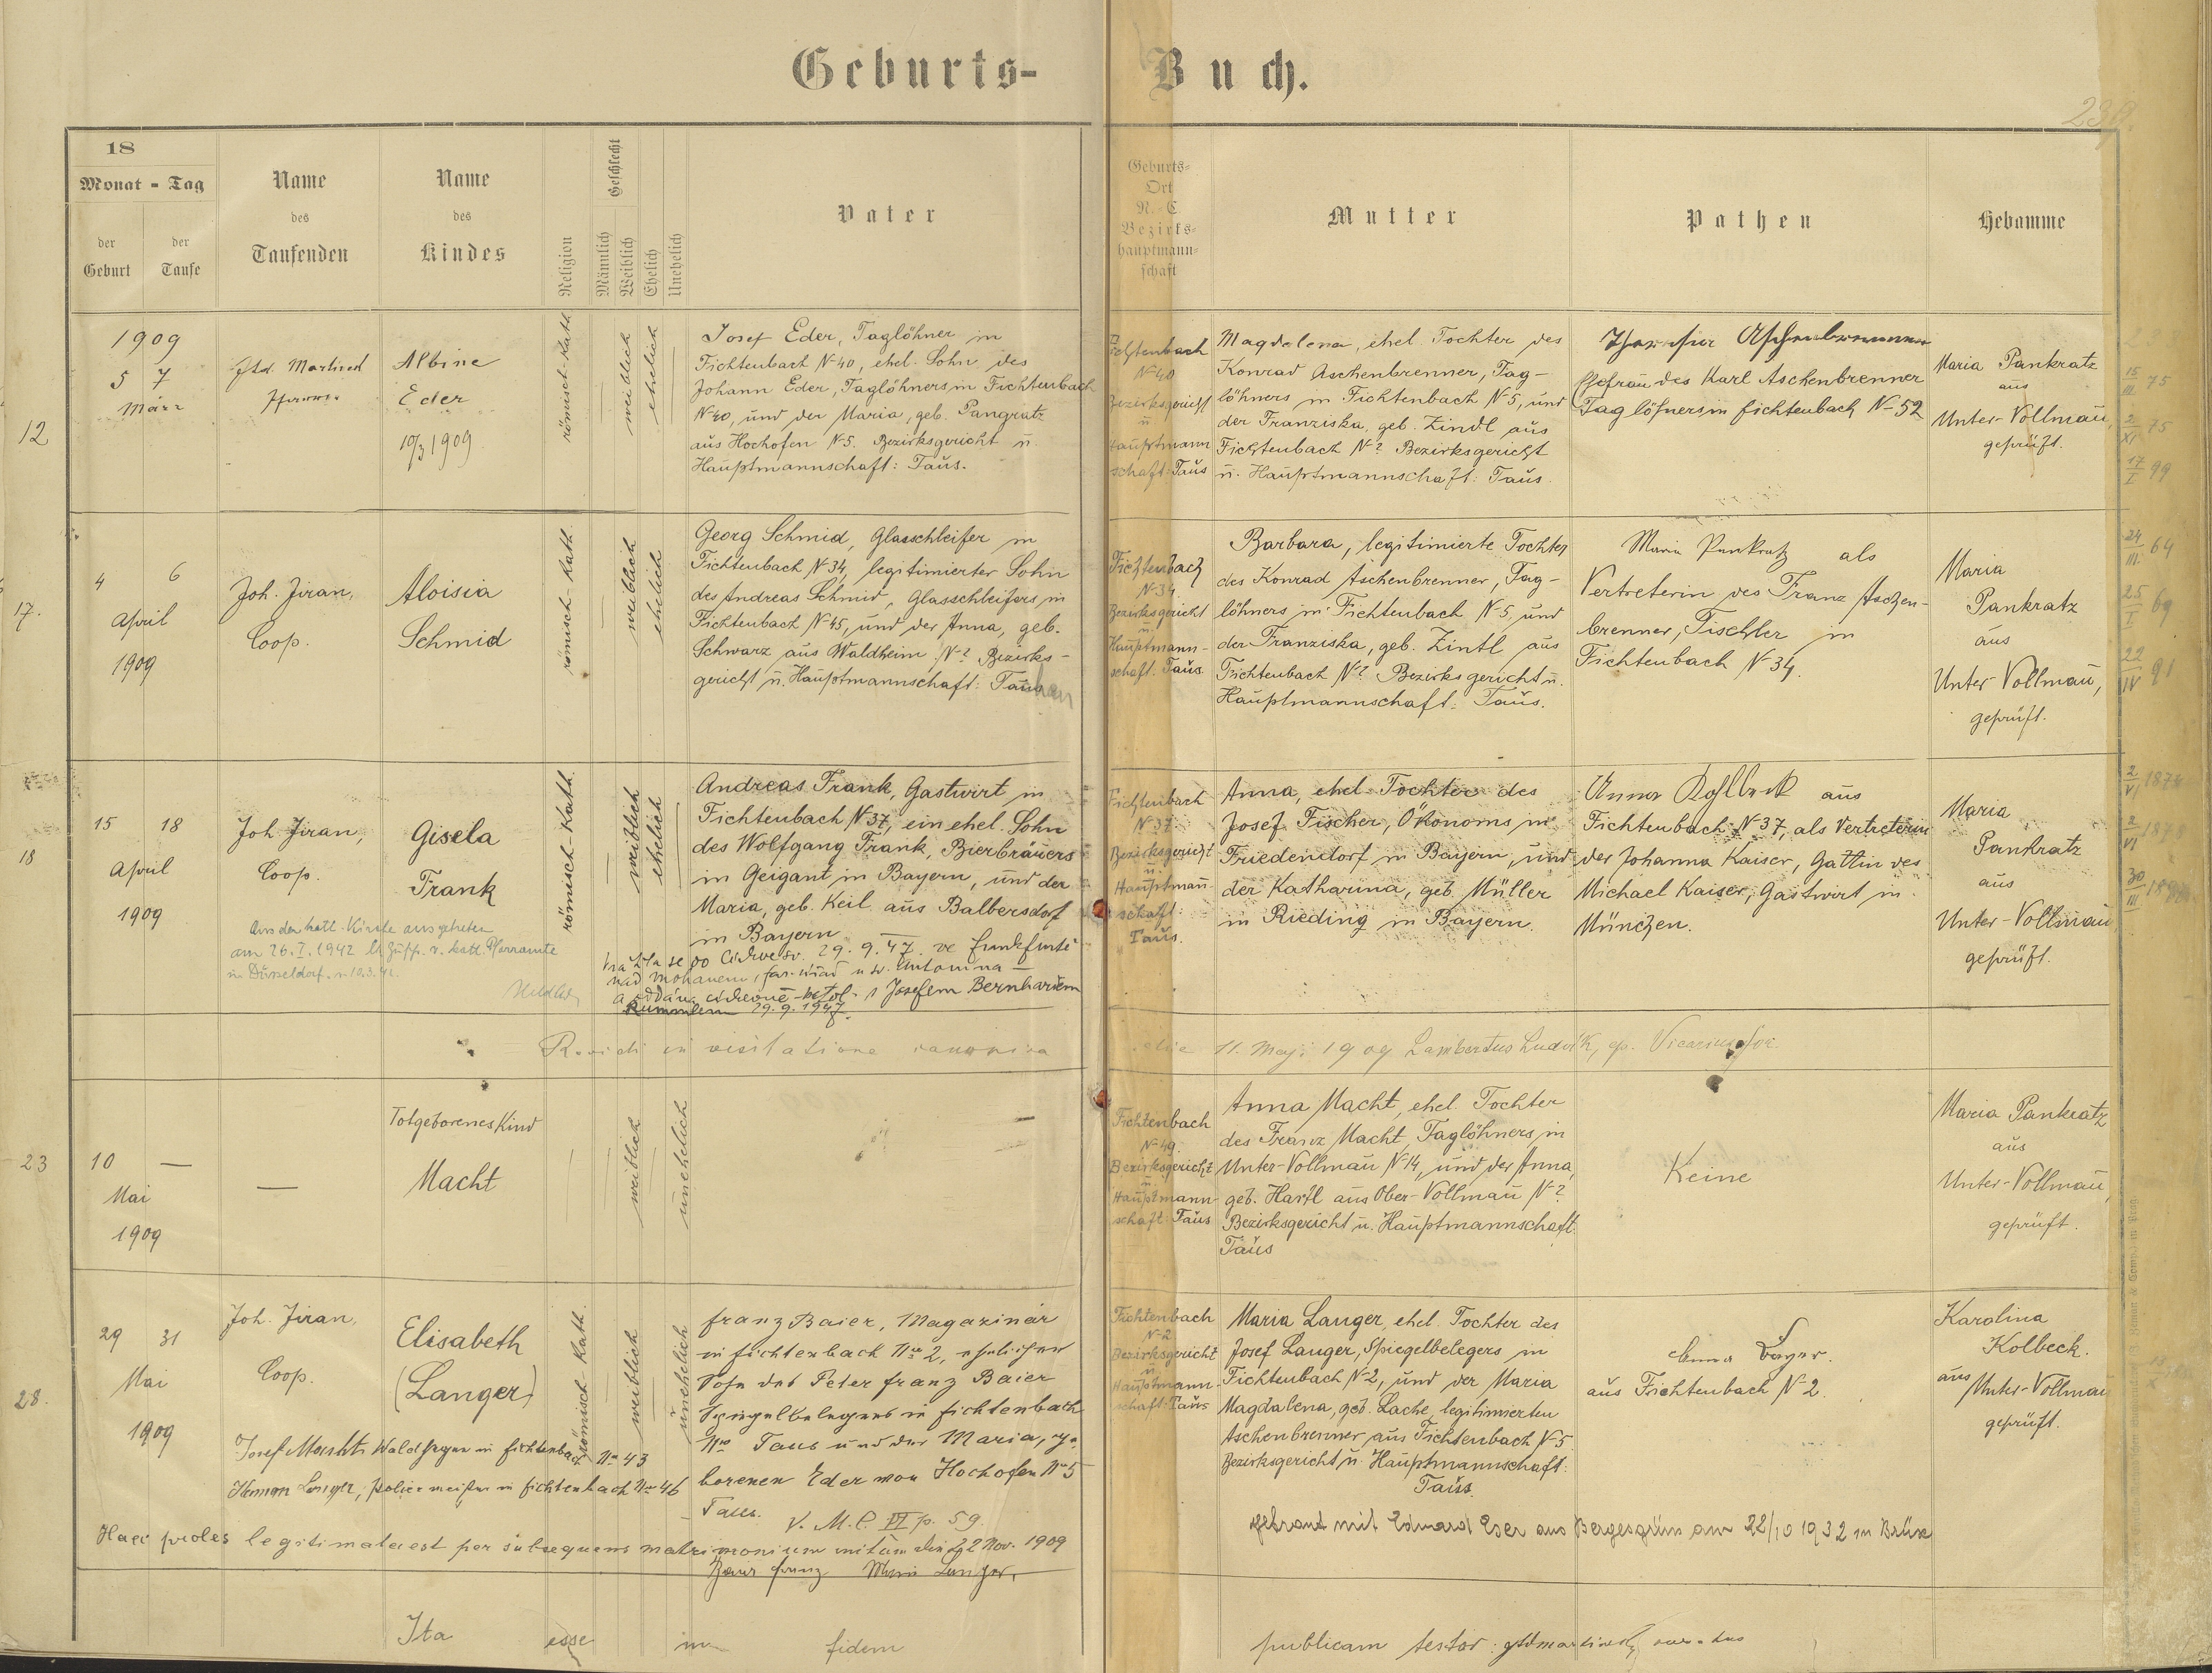 Geburts-Buch.
239.
18
Monat - Tag
der Geburt
der Taufe
Name des Taufenden
Name des Kindes
Religion
Geschlecht
Männlich
Weiblich
Ehelich
Unehelich
Vater
Geburts-
Ort
N.-C.
Bezirks-
hauptmann-
schaft
Mutter
Pathen
Hebamme
12
1909
5 7
März
Albine
Eder
10/3 1909
römisch-kath.
weiblich
ehelich
Josef Eder, Taglöhner in
Fichtenbach N 40, ehel. Sohn des
Johann Eder, Taglöhners in Fichtenbach
N 40, und der Maria, geb. Pangratz
aus Hochofen N 5. Bezirksgericht u.
Hauptmannschaft: Taus.
Fichtenbach
N 40
Bezirksgericht
u
Hauptmann
schaft: Taus
Magdalena, ehel. Tochter des
Konrad Aschenbrenner, Tag-
löhners in Fichtenbach N 5, und
der Franziska, geb. Zindl aus
Fichtenbach N ? Bezirksgericht
u. Hauptmannschaft: Taus.
Ehefrau des Karl Aschenbrenner
Taglöhners in Fichtenbach N 52
Maria Pankratz
aus
Unter-Vollmau,
geprüft.
15/III 75
2/XI 75
17/I 99
17.
4 6
April
1909
Joh. Jiran,
Coop.
Aloisia
Schmid
römisch-kath.
weiblich
ehelich
Georg Schmid, Glasschleifer in
Fichtenbach N 34, legitimierter Sohn
des Andreas Schmid, Glasschleifers in
Fichtenbach N 45, und der Anna, geb.
Schwarz aus Waldheim N ? Bezirks-
gericht u. Hauptmannschaft: Taus
Fichtenbach
N 34
Bezirksgericht
u.
Hauptmann-
schaft: Taus.
Barbara, legitimierte Tochter
des Konrad Aschenbrenner, Tag-
löhners in Fichtenbach N 5, und
der Franziska, geb. Zintl aus
Fichtenbach N ? Bezirksgericht u.
Hauptmannschaft: Taus.
Maria Pankratz als
Vertreterin des Franz Aschen-
brenner, Tischler in
Fichtenbach N 34.
Maria
Pankratz
aus
Unter Vollmau,
geprüft.
24/III. 64
25/I 69
22/IV 91
18
15 18
April
1909
Joh. Jiran,
Coop.
Gisela
Frank
römisch-kath.
weiblich
ehelich
Andreas Frank, Gastwirt in
Fichtenbach N 37, ein ehel. Sohn
des Wolfgang Frank, Bierbräuers
in Geigant in Bayern, und der
Maria, geb. Keil aus Balbersdorf
in Bayern
Aus der kath. Kirche ausgetreten
am 26. I. 1942 lt. Zuschr. v. kath. Pfarramte
in Düsseldorf. v. 10.3.42.
vrátila se do církve sv. 29. 9. 47. ve Frankfurtě
nad Mohanem, far. úřad u sv. Antonína
a oddána církevně s Josefem Bernhardem
29. 9. 1947.
Fichtenbach
N 37
Bezirksgericht
u.
Hauptman-
schaft:
Taus.
Anna, ehel. Tochter des
Josef Fischer, Ökonoms in
Friedendorf in Bayern, und
der Katharina, geb. Müller
in Rieding in Bayern.
Anna Kohlbeck aus
Fichtenbach N 37, als Vertreterin
der Johanna Kaiser, Gattin des
Michael Kaiser, Gastwirt in
München.
Maria
Pankratz
aus
Unter-Vollmau
geprüft.
2/VI 1874
in visitatione canonica die 11. Maji 1909 Lambertus Ludvík, Vicarius for.
23
10 —
Mai
1909
—
Totgeborenes Kind
Macht
weiblich
unehelich
—
Fichtenbach
N 49.
Bezirksgericht
u.
Hauptmann-
schaft: Taus
Anna Macht, ehel. Tochter
des Franz Macht, Taglöhners in
Unter-Vollmau N 14, und der Anna,
geb. Hartl aus Ober-Vollmau N ?
Bezirksgericht u. Hauptmannschaft:
Taus
Keine
Maria Pankratz
aus
Unter-Vollmau,
geprüft.
28.
29 31
Mai
1909
Joh. Jiran,
Coop.
Elisabeth
(Langer)
römisch kath.
weiblich
unehelich
Franz Baier, Magazinär
in Fichtenbach No 2, ehelicher
Sohn des Peter Franz Baier
Spiegelbelegers in Fichtenbach
No Taus und der Maria, ge-
borenen Eder von Hochofen No 5
Taus.
V. M. l. VI p. 59.
Fichtenbach
N 2
Bezirksgericht
u.
Hauptmann-
schaft: Taus
Maria Langer, ehel. Tochter des
Josef Langer, Spiegelbelegers in
Fichtenbach N 2, und der Maria
Magdalena, geb. Lache, legitimierten
Aschenbrenner aus Fichtenbach N 5
Bezirksgericht u. Hauptmannschaft:
Taus.
Anna Bayer.
aus Fichtenbach N 2.
Karolina
Kolbeck.
aus
Unter-Vollmau
geprüft.
Josef Macht, Waldheger in Fichtenbach No 43
Langer, Poliermeister in Fichtenbach No 46
Haec proles legitimata est per subsequens matrimonium initum die 22 Nov. 1909
Baier Franz Maria Langer.
getraut mit Eduard Eser aus Bergesgrün am 22/10 1932 in Brüx
Ita esse in fidem publicam testor: